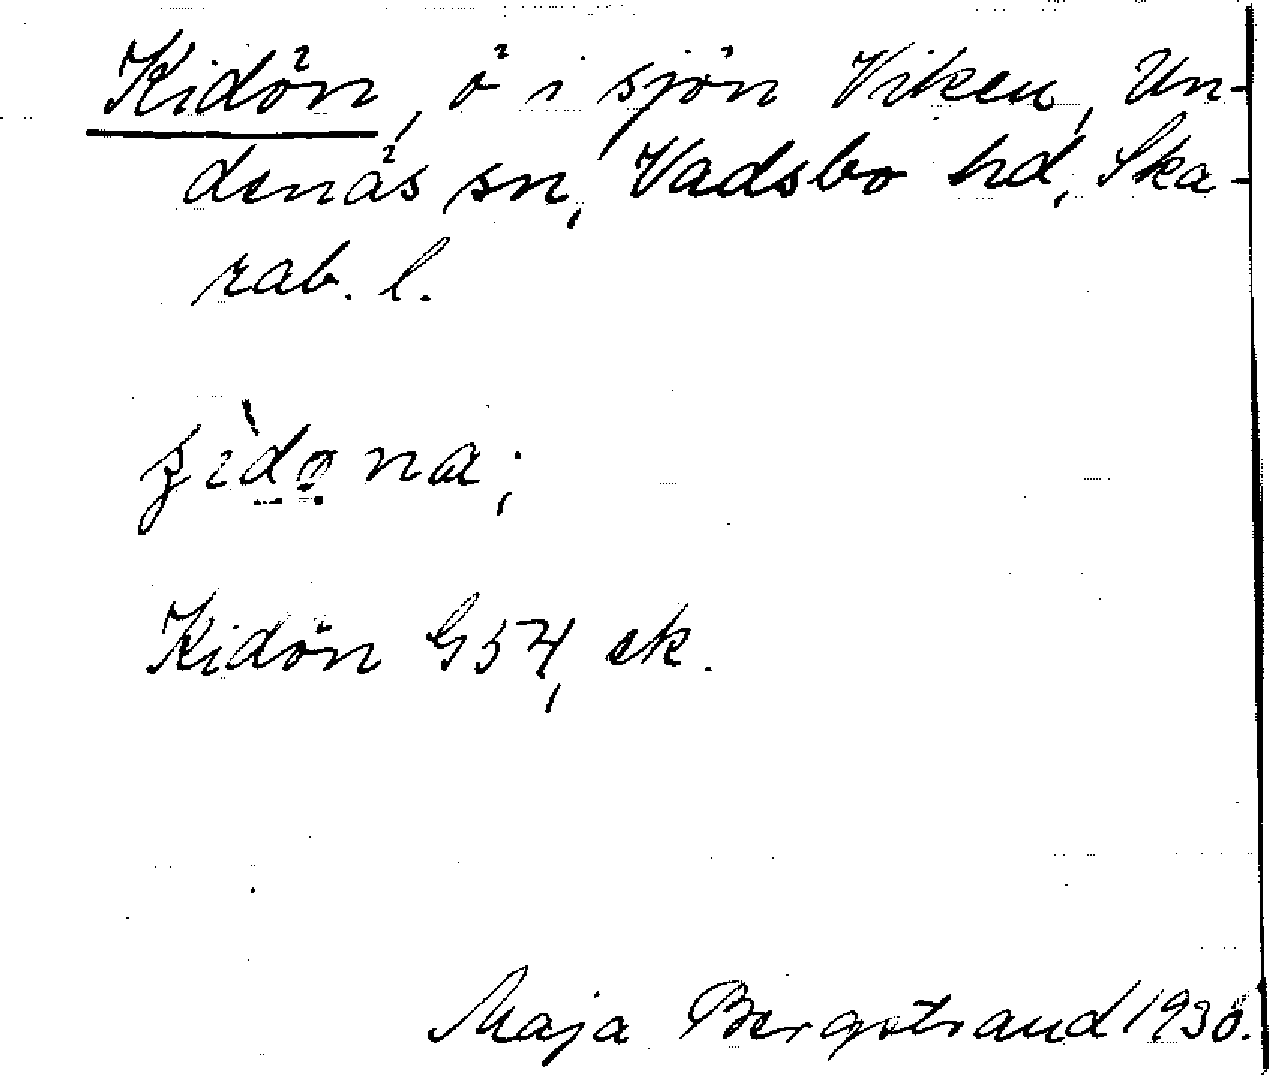 Kidön, ö i sjön Viken, Un-
denäs sn, Vadsbo hd, Ska-
rab. l.
Kidön G54, ek.
Maja Bergstrand 1930.